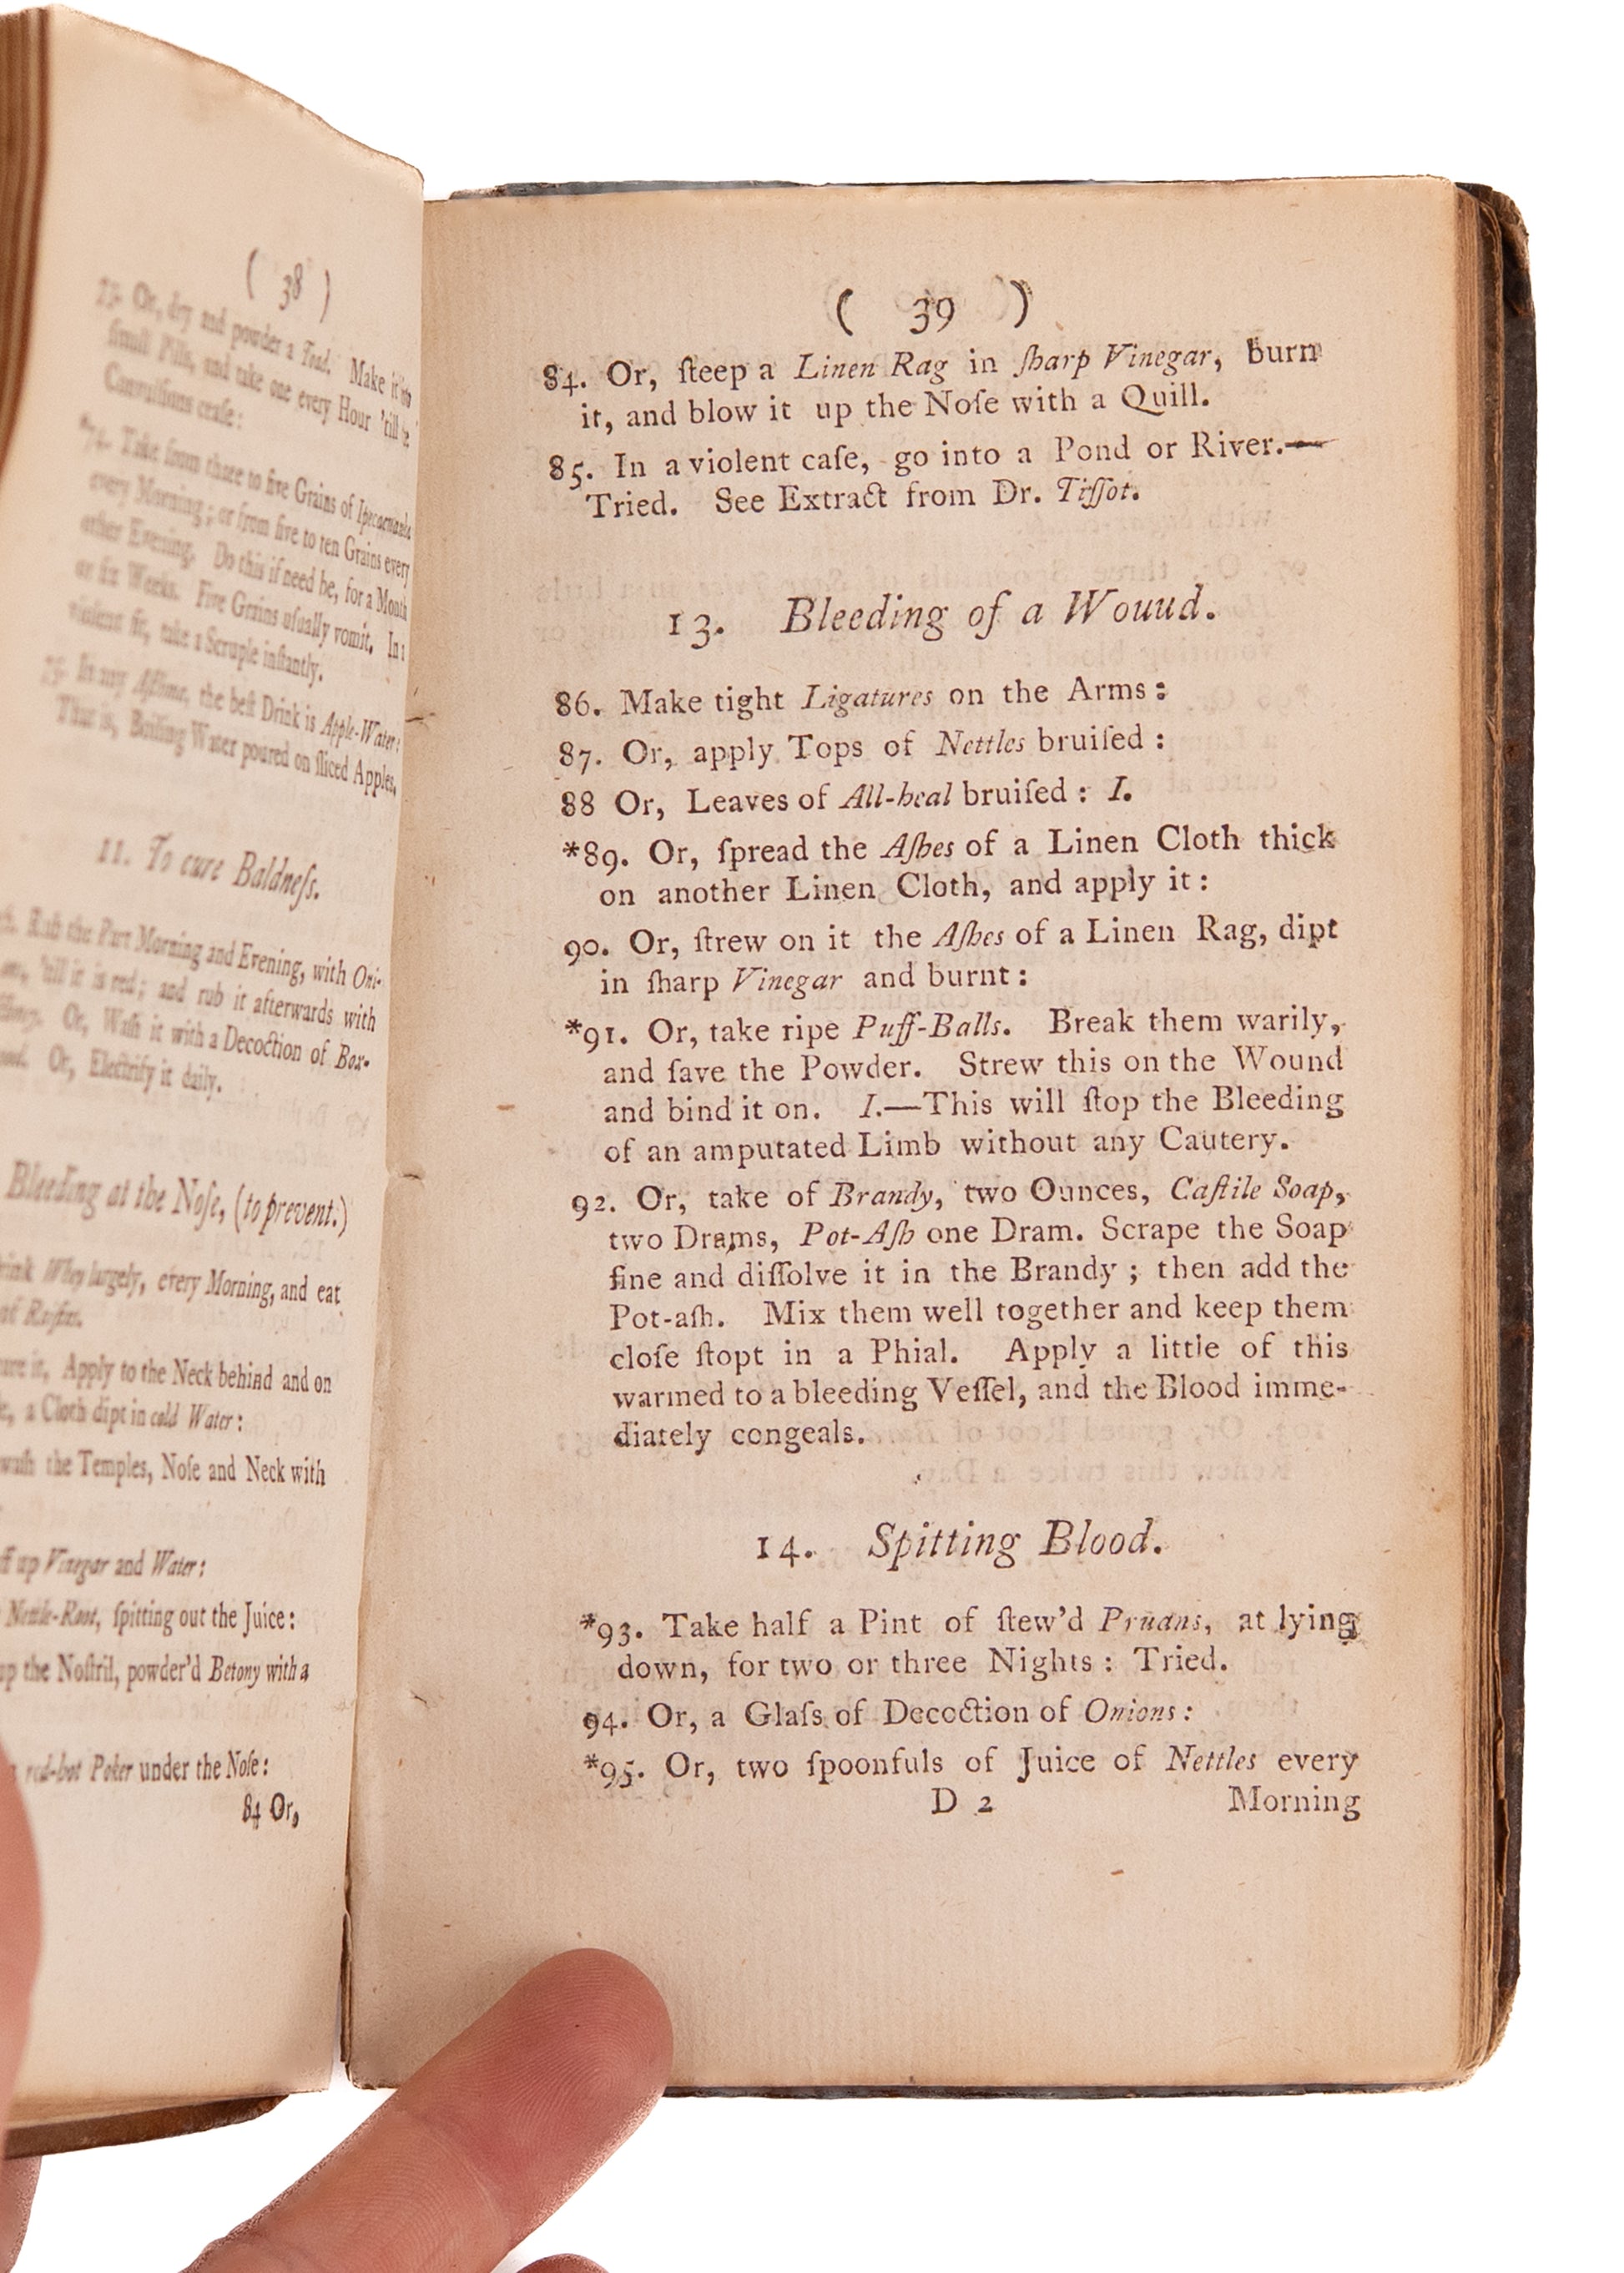 ( 38 )
73. Or, dry and powder a Toad. Make it into
ſmall Pills, and take one every Hour 'till the
Convulſions ceaſe:
*74. Take from three to five Grains of Ipecacuanha
every Morning; or from five to ten Grains every
other Evening. Do this if need be, for a Month
or ſix Weeks. Five Grains uſually vomit. In a
violent fit, take a Scruple inſtantly.
75. In any Aſthma, the beſt Drink is Apple-Water:
That is, Boiling Water poured on ſliced Apples.
11. To cure Baldneſs.
Rub the Part Morning and Evening, with Oni-
'till it is red; and rub it afterwards with
Or, Waſh it with a Decoction of Box-
Or, Electrify it daily.
Bleeding at the Noſe, (to prevent.)
Whey largely, every Morning, and eat
of
Apply to the Neck behind and on
a Cloth dipt in cold Water:
the Temples, Noſe and Neck with
up Vinegar and Water:
Nettle-Root, ſpitting out the Juice:
the Noſtril, powder'd Betony with a
red-hot Poker under the Noſe:
84 Or,
( 39 )
84. Or, ſteep a Linen Rag in ſharp Vinegar, burn
it, and blow it up the Noſe with a Quill.
85. In a violent caſe, go into a Pond or River.—
Tried. See Extract from Dr. Tiſſot.
13. Bleeding of a Wouud.
86. Make tight Ligatures on the Arms:
87. Or, apply Tops of Nettles bruiſed:
88 Or, Leaves of All-heal bruiſed: I.
*89. Or, ſpread the Aſhes of a Linen Cloth thick
on another Linen Cloth, and apply it:
90. Or, ſtrew on it the Aſhes of a Linen Rag, dipt
in ſharp Vinegar and burnt:
*91. Or, take ripe Puff-Balls. Break them warily,
and ſave the Powder. Strew this on the Wound
and bind it on. I.—This will ſtop the Bleeding
of an amputated Limb without any Cautery.
92. Or, take of Brandy, two Ounces, Caſtile Soap,
two Drams, Pot-Aſh one Dram. Scrape the Soap
fine and diſſolve it in the Brandy; then add the
Pot-aſh. Mix them well together and keep them
cloſe ſtopt in a Phial. Apply a little of this
warmed to a bleeding Veſſel, and the Blood imme-
diately congeals.
14. Spitting Blood.
*93. Take half a Pint of ſtew'd Pruans, at lying
down, for two or three Nights: Tried.
94. Or, a Glaſs of Decoction of Onions:
*95. Or, two ſpoonfuls of Juice of Nettles every
D 2 Morning